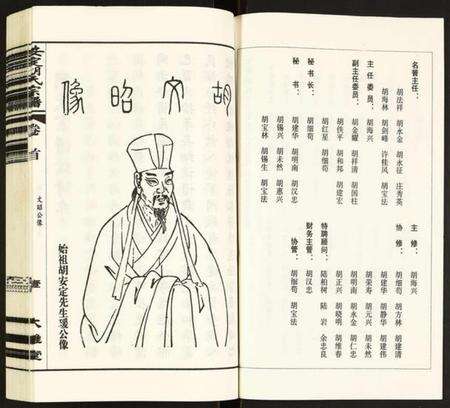 名誉主任：
胡法祥 胡水金 胡永征 庄秀英
胡海林 胡剑峰 许桂凤 胡宝法
主任委员：
胡海兴
副主任委员：
胡金耀 胡祥清 胡国柱
胡佚平 胡和邦 胡建宏
胡红星 胡细苟
秘书长：
胡细苟
秘书：
胡建华 胡明南 胡汉忠
胡锡兴 胡未然 胡惠兴
胡宝林 胡锡生 胡宝法
主修：
胡海兴
协修：
胡细苟 胡方林 胡建清
胡建华 胡静华 胡建伟
胡荣寿 胡元兴 胡未然
胡明南 胡水金 胡仁忠
胡正兴 胡晓明 胡维春
特聘顾问：
陆柏树 陆岩 余忠良
财务主管：
胡汉忠
协管：
胡细苟 胡宝法
胡文昭像
始祖胡安定先生瑗公像
安定胡氏宗谱
卷首
文昭公像
大雅堂